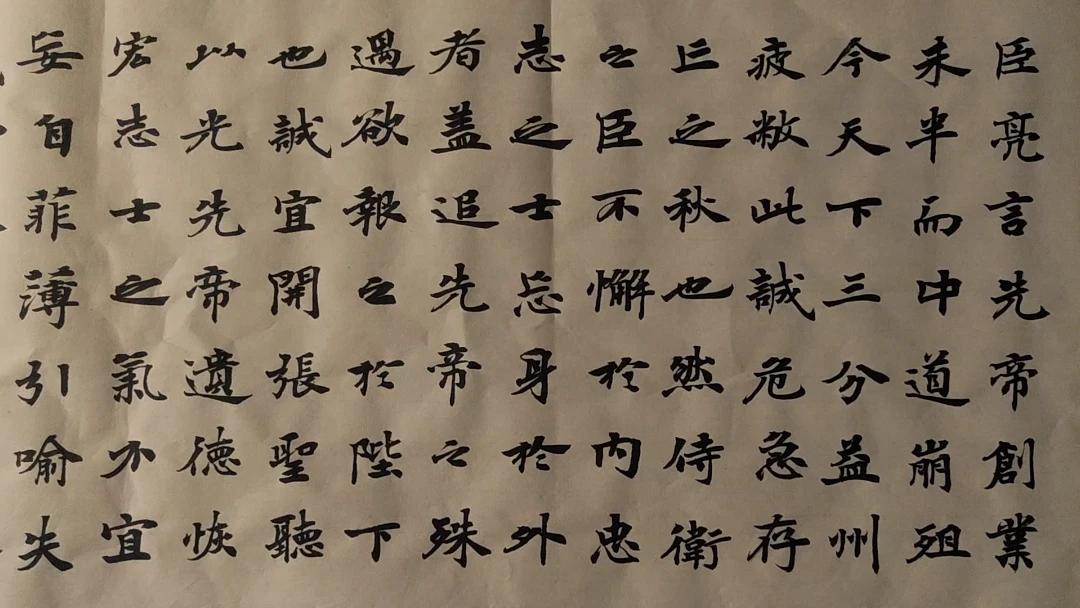 臣亮言先帝創業
未半而中道崩殂
今天下三分益州
疲敝此誠危急存
亡之秋也然侍衛
之臣不懈於内忠
志之士忘身於外
者盖追先帝之殊
遇欲報之於陛下
也誠宜開張聖聽
以光先帝遺德恢
宏志士之氣不宜
妄自菲薄引喻失